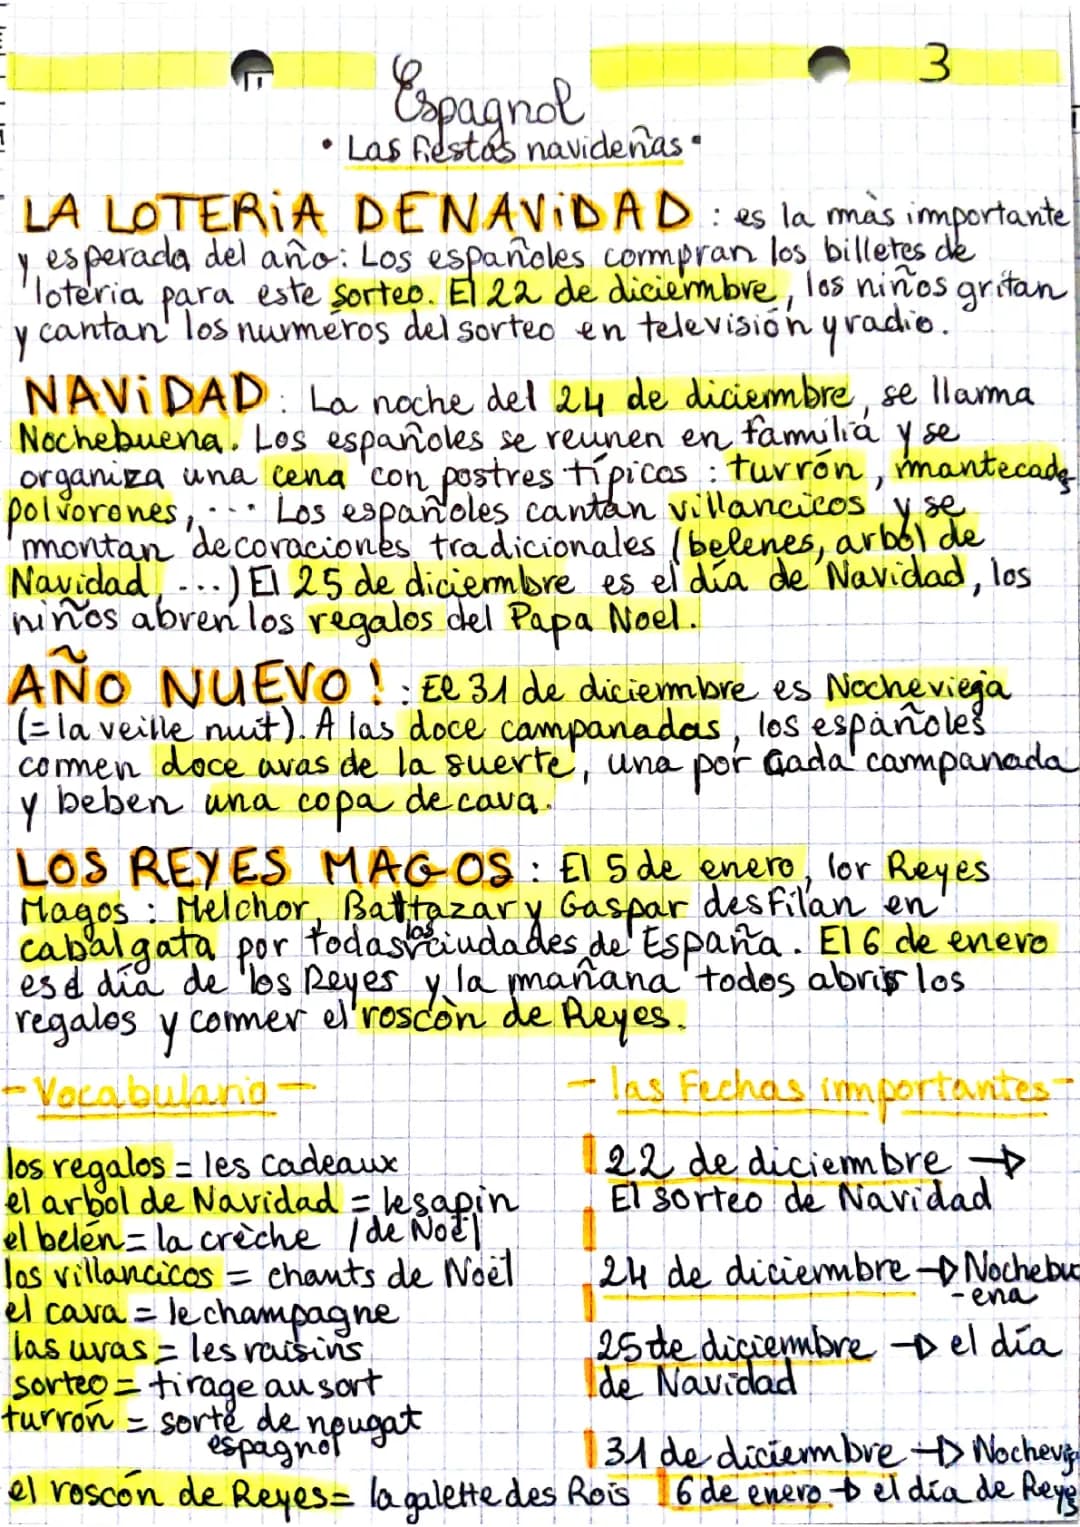 3
Espagnol
• Las fiestas navideñas •
LA LOTERiA DE NAViDAD : es la màs importante
y esperada del año: Los españoles compran los billetes de
loteria para este sorteo. El 22 de diciembre, los niños gritan
y cantan los numéros del sorteo en televisión y radio.
NAViDAD : La noche del 24 de diciembre, se llama
Nochebuena. Los españoles se reunen en familia y se
organiza una cena con postres típicos : turrón, mantecados
polvorones, ... Los españoles cantan villancicos y se
montan decoraciones tradicionales (belenes, arbol de
Navidad, ...) El 25 de diciembre es el día de Navidad, los
niños abren los regalos del Papa Noel.
AÑO NUEVO ! : El 31 de diciembre es Nocheviega
(= la veille nuit). A las doce campanadas, los españoles
comen doce uvas de la suerte, una por cada campanada
y beben una copa de cava.
LOS REYES MAGOS : El 5 de enero, lor Reyes
Magos : Melchor, Battazar y Gaspar desfilan en
cabalgata por todas las ciudades de España. El 6 de enero
es el día de los Reyes y la mañana todos abris los
regalos y commer el roscòn de Reyes.
- Vocabulario -
los regalos = les cadeaux
el arbol de Navidad = le sapin
/de Noël
el belén = la crèche
los villancicos = chants de Noël
el cava = le champagne
las uvas = les raisins
sorteo = tirage au sort
turrón = sorte de nougat
espagnol
el roscón de Reyes = la galette des Rois
- las Fechas importantes -
22 de diciembre →
El sorteo de Navidad
24 de diciembre → Nochebu
-ena
25 de diciembre → el día
de Navidad
31 de diciembre → Nochevi
6 de enero → el día de Reyes